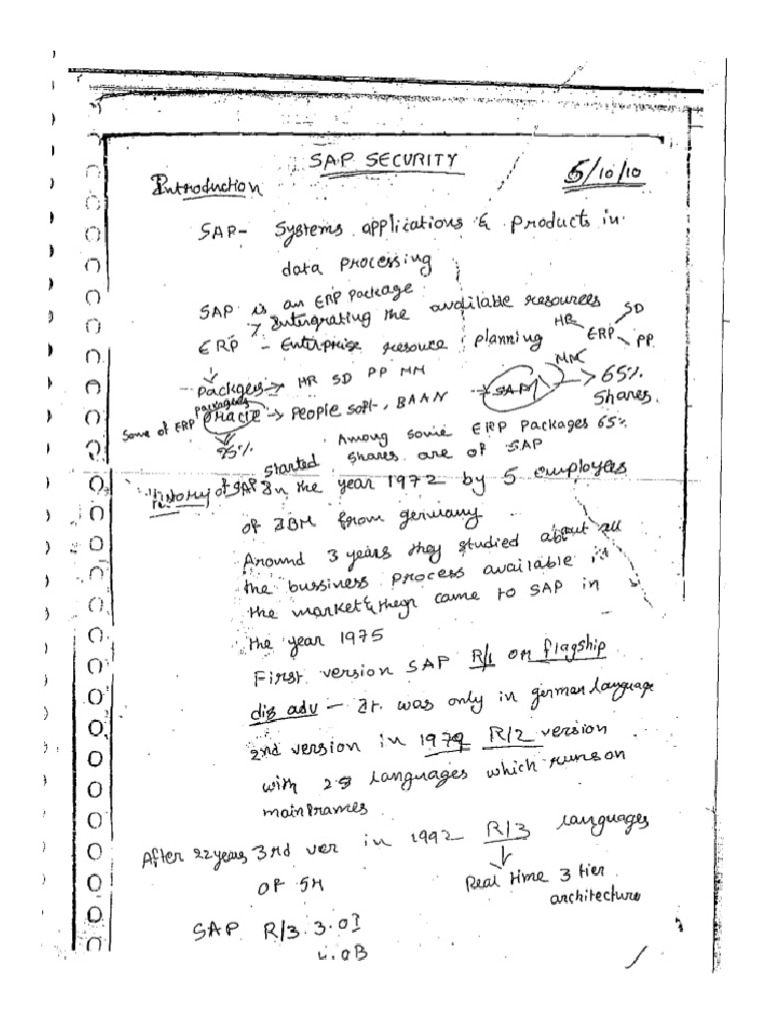 SAP SECURITY
Introduction
5/10/10
SAP- Systems applications & products in
data processing
SAP is an ERP package
Intergrating the available resources
ERP - Enterprise resource planning
HR SD
ERP
MM PP
packages → HR SD PP MM
Some of ERP packages oracle → People soft, BAAN → SAP → 65%
Shares
25%
Among some ERP packages 65%
shares are of SAP
History of SAP started In the year 1972 by 5 employees
of IBM from germany
Around 3 years they studied about all
the bussiness process available in
the market & then came to SAP in
the year 1975
First version SAP R/1 or flagship
dis adv - It was only in german language
2nd version in 1979 R/2 version
with languages which runs on
mainframes
After 22 years 3rd ver in 1992 R/3 languages
of
Real time 3 tier
architecture
SAP R/3 3.0I
4.0B